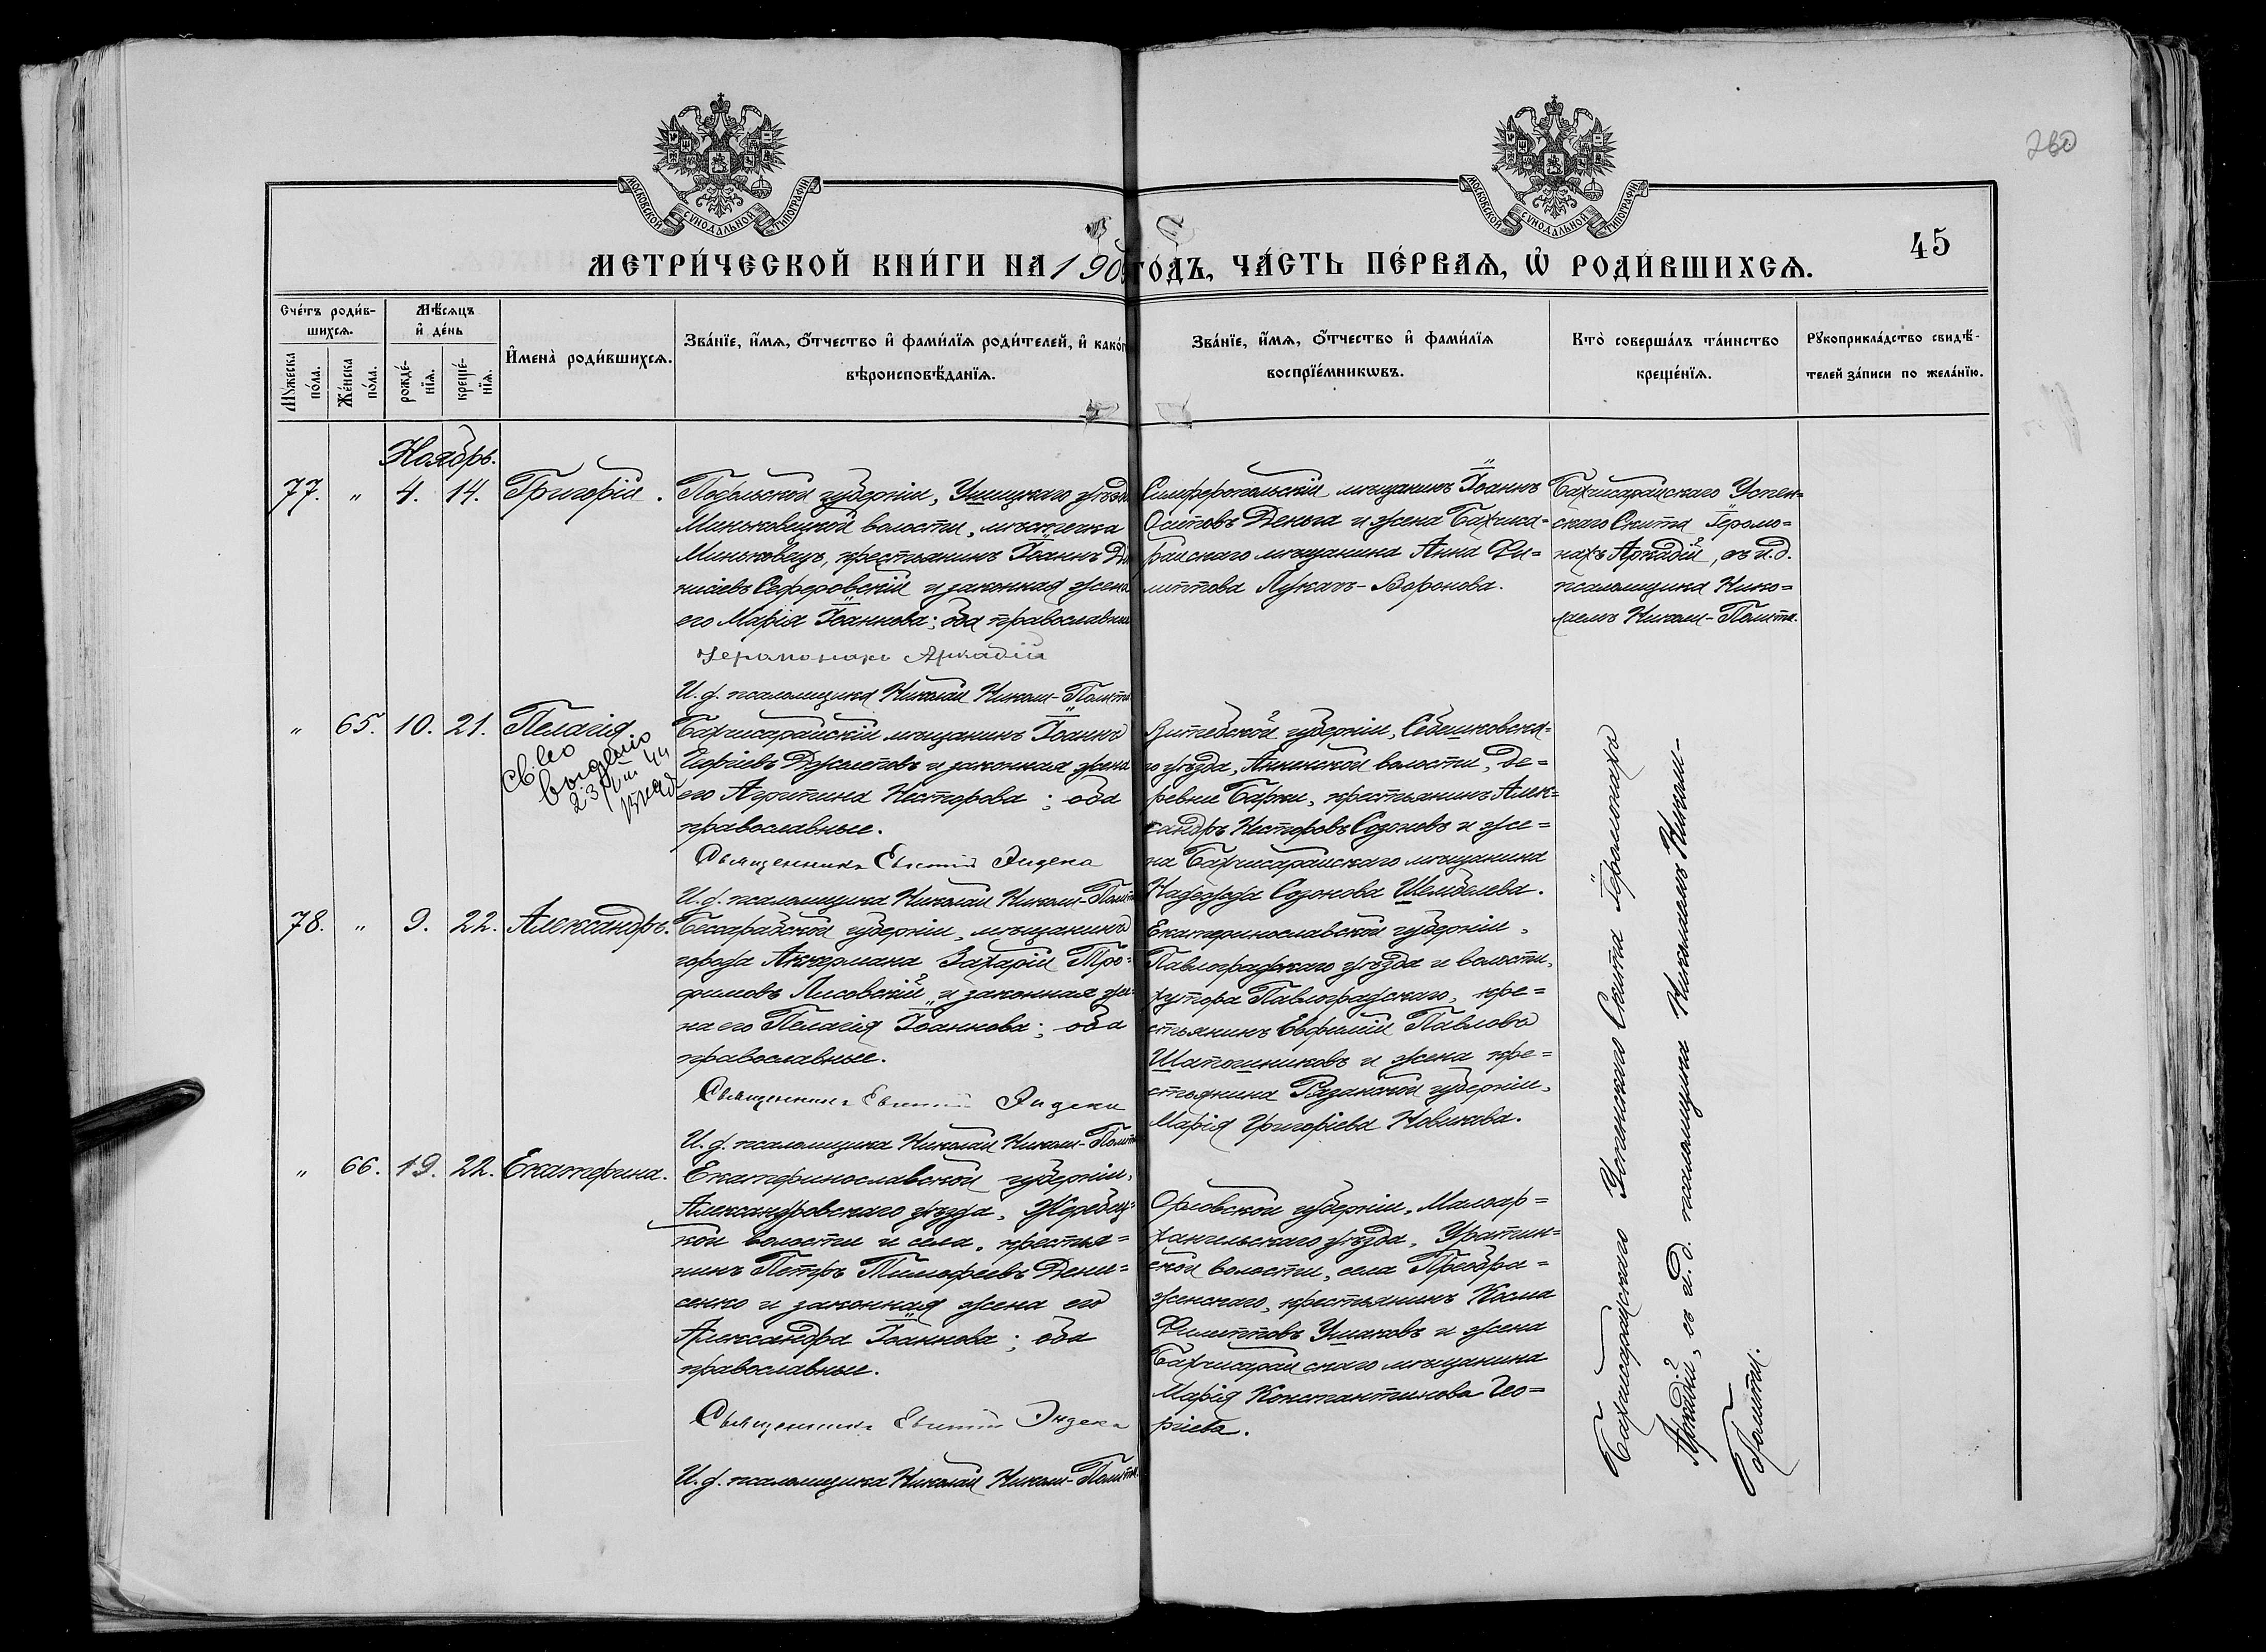 260
МОСКОВСКОЙ СѴНОДАЛЬНОЙ ТИПОГРАФІИ
МОСКОВСКОЙ СѴНОДАЛЬНОЙ ТИПОГРАФІИ
45
МЕТРИ́ЧЕСКОЙ КНИ́ГИ НА 190 ГО́ДЪ, ЧА́СТЬ ПЕ́РВАѦ, Ѡ҆ РОДИ́ВШИХСѦ.
Сче́тъ роди́в-
шихсѧ.
Мꙋ́жеска по́ла.
Же́нска по́ла.
Мѣ́сѧцъ
и҆ де́нь
рожде́-нїѧ.
креще́-нїѧ.
И҆мена̀ роди́вшихсѧ.
Зва́нїе, и҆́мѧ, ѻ҆́тчество и҆ фами́лїѧ роди́телей, и҆ како́гѡ
вѣроисповѣ́данїѧ.
Зва́нїе, и҆́мѧ, ѻ҆́тчество и҆ фами́лїѧ
воспрїе́мникѡвъ.
Кто̀ соверша́лъ та́инство
креще́нїѧ.
Рꙋкоприкла́дство свидѣ́-
телей за́писи по жела́нїю.
Ноябрь.
77. " 4. 14. Григорій.
Подольской губерніи, Ушицкаго уѣзда
Миньковецкой волости, мѣстечка
Миньковецъ, крестьянинъ Іоаннъ
Сеферовскій и законная жена
его Марія Іоаннова; оба православные
Іеромонахъ Аркадій
И. д. псаломщика Николай Николи-Полити
Симферопольскій мѣщанинъ Іоаннъ
Осиповъ Деньга и жена Бахчиса-
райскаго мѣщанина Анна Фи-
липпова Лукачъ-Воронова.
Бахчисарайскаго Успен-
скаго Скита Іеромо-
нахъ Аркадій, съ и. д.
псаломщика Нико-
лаемъ Николи-Полити.
" 65. 10. 21. Пелагія
Св-во
выдано
23/VIII 44
Бахчисарайскій мѣщанинъ Іоаннъ
Джелеповъ и законная жена
его Агрипина Несторова; оба
православные.
Священникъ Евгеній Эндека
И. д. псаломщика Николай Николи-Полити
Витебской губерніи, Себежковска-
го уѣзда, Аннинской волости, де-
ревни Барки, крестьянинъ Алек-
сандръ Несторовъ Созоновъ и же-
на Бахчисарайскаго мѣщанина
Надежда Созонова Шелюблева.
78. " 9. 22. Александръ.
Бессарабской губерніи, мѣщанинъ
города Аккермана Захарій Тро-
фимовъ Лисовскій и законная же-
на его Пелагія Іоаннова; оба
православные.
Священникъ Евгеній Эндека
И. д. псаломщика Николай Николи-Полити
Екатеринославской губерніи,
Павлоградскаго уѣзда и волости,
хутора Павлоградскаго, кре-
стьянинъ Евфимій Павловъ
Шапошниковъ и жена кре-
стьянина Рязанской губерніи,
Марія Григоріева Новикова.
" 66. 19. 22. Екатерина.
Екатеринославской губерніи,
Александровскаго уѣзда, Жеребец-
кой волости и села, крестья-
нинъ Петръ Тимофеевъ Дени-
сенко и законная жена его
Александра Іоаннова; оба
православные.
Священникъ Евгеній Эндека
И. д. псаломщика Николай Николи-Полити.
Орловской губерніи, Малоар-
хангельскаго уѣзда,
ской волости, села Преобра-
женскаго, крестьянинъ Косма
Филипповъ Ушаковъ и жена
Бахчисарайскаго мѣщанина
Марія Константинова Гео-
ргіева.
Бахчисарайскаго Успенскаго Скита Іеромонахъ
Аркадій, съ и. д. псаломщика Николаемъ Николи-
Полити.